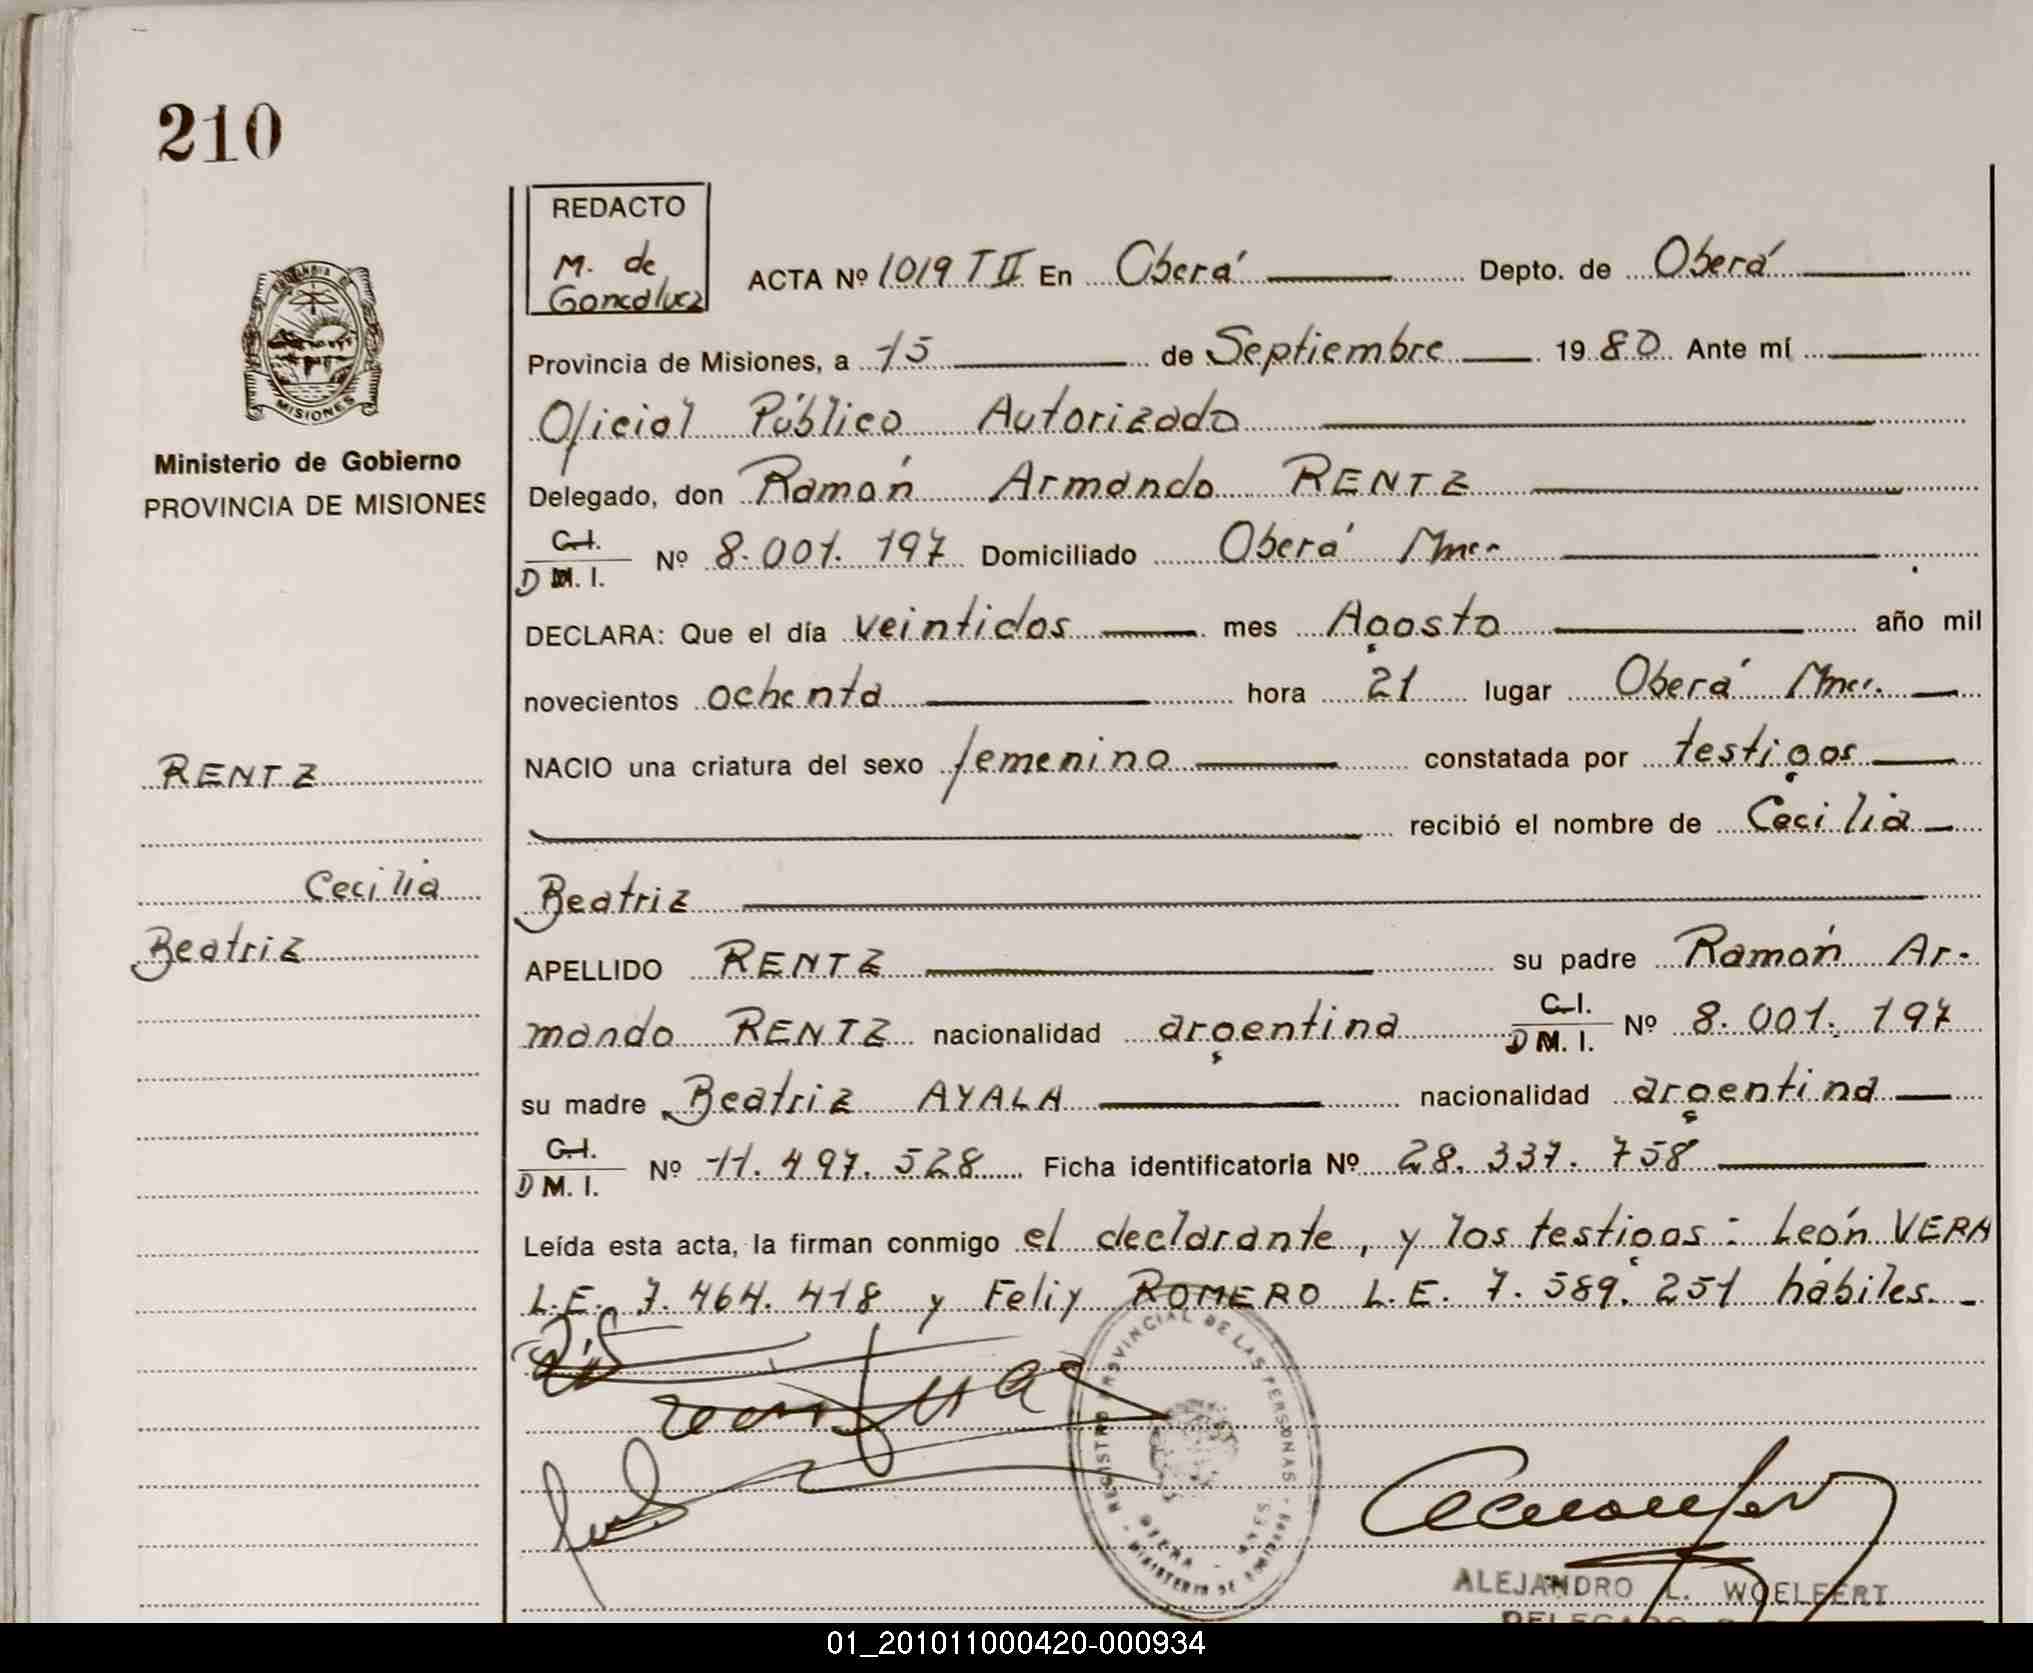 210
REDACTO
M. de
Goncalvez
ACTA Nº 1019 T II En Oberá Depto. de Oberá
Provincia de Misiones, a 15 de Septiembre 1980 Ante mí
Oficial Público Autorizado
Delegado, don Ramón Armando RENTZ
C.I.
D M. I. Nº 8.001.197 Domiciliado Oberá Mnes.
DECLARA: Que el día veintidos mes Agosto año mil
novecientos ochenta hora 21 lugar Oberá Mnes.
NACIO una criatura del sexo femenino constatada por testigos
recibió el nombre de Cecilia
Beatriz
APELLIDO RENTZ su padre Ramón Ar-
mando RENTZ nacionalidad argentina C.I. D M. I. Nº 8.001.197
su madre Beatriz AYALA nacionalidad argentina
C.I.
D M. I. Nº 11.497.528 Ficha identificatoria Nº 28.337.758
Leída esta acta, la firman conmigo el declarante, y los testigos: León VERA
L.E. 7.464.418 y Felix ROMERO L.E. 7.589.251 hábiles.-
MISIONES
Ministerio de Gobierno
PROVINCIA DE MISIONES
RENTZ
Cecilia
Beatriz
REGISTRO PROVINCIAL DE LAS PERSONAS
OBERA
MINISTERIO DE
ALEJANDRO L. WOELFERT
DELEGADO
01_201011000420-000934